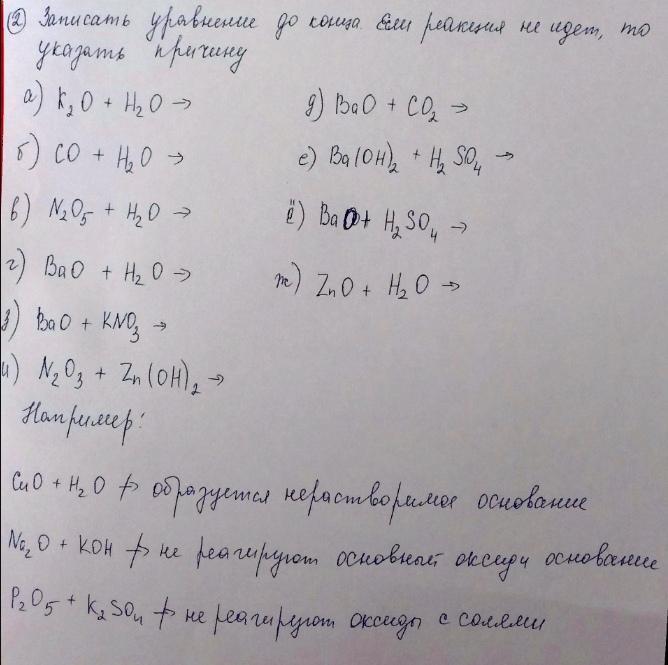 ② Записать уравнение до конца. Если реакция не идет, то
указать причину
а) K₂O + H₂O →
б) CO + H₂O →
в) N₂O₅ + H₂O →
г) BaO + H₂O →
д) BaO + CO₂ →
е) Ba(OH)₂ + H₂SO₄ →
ё) BaO + H₂SO₄ →
ж) ZnO + H₂O →
з) BaO + KNO₃ →
и) N₂O₃ + Zn(OH)₂ →
Например:
CuO + H₂O ↛ образуется нерастворимое основание
Na₂O + KOH ↛ не реагируют основный оксид и основание
P₂O₅ + K₂SO₄ ↛ не реагируют оксиды с солями